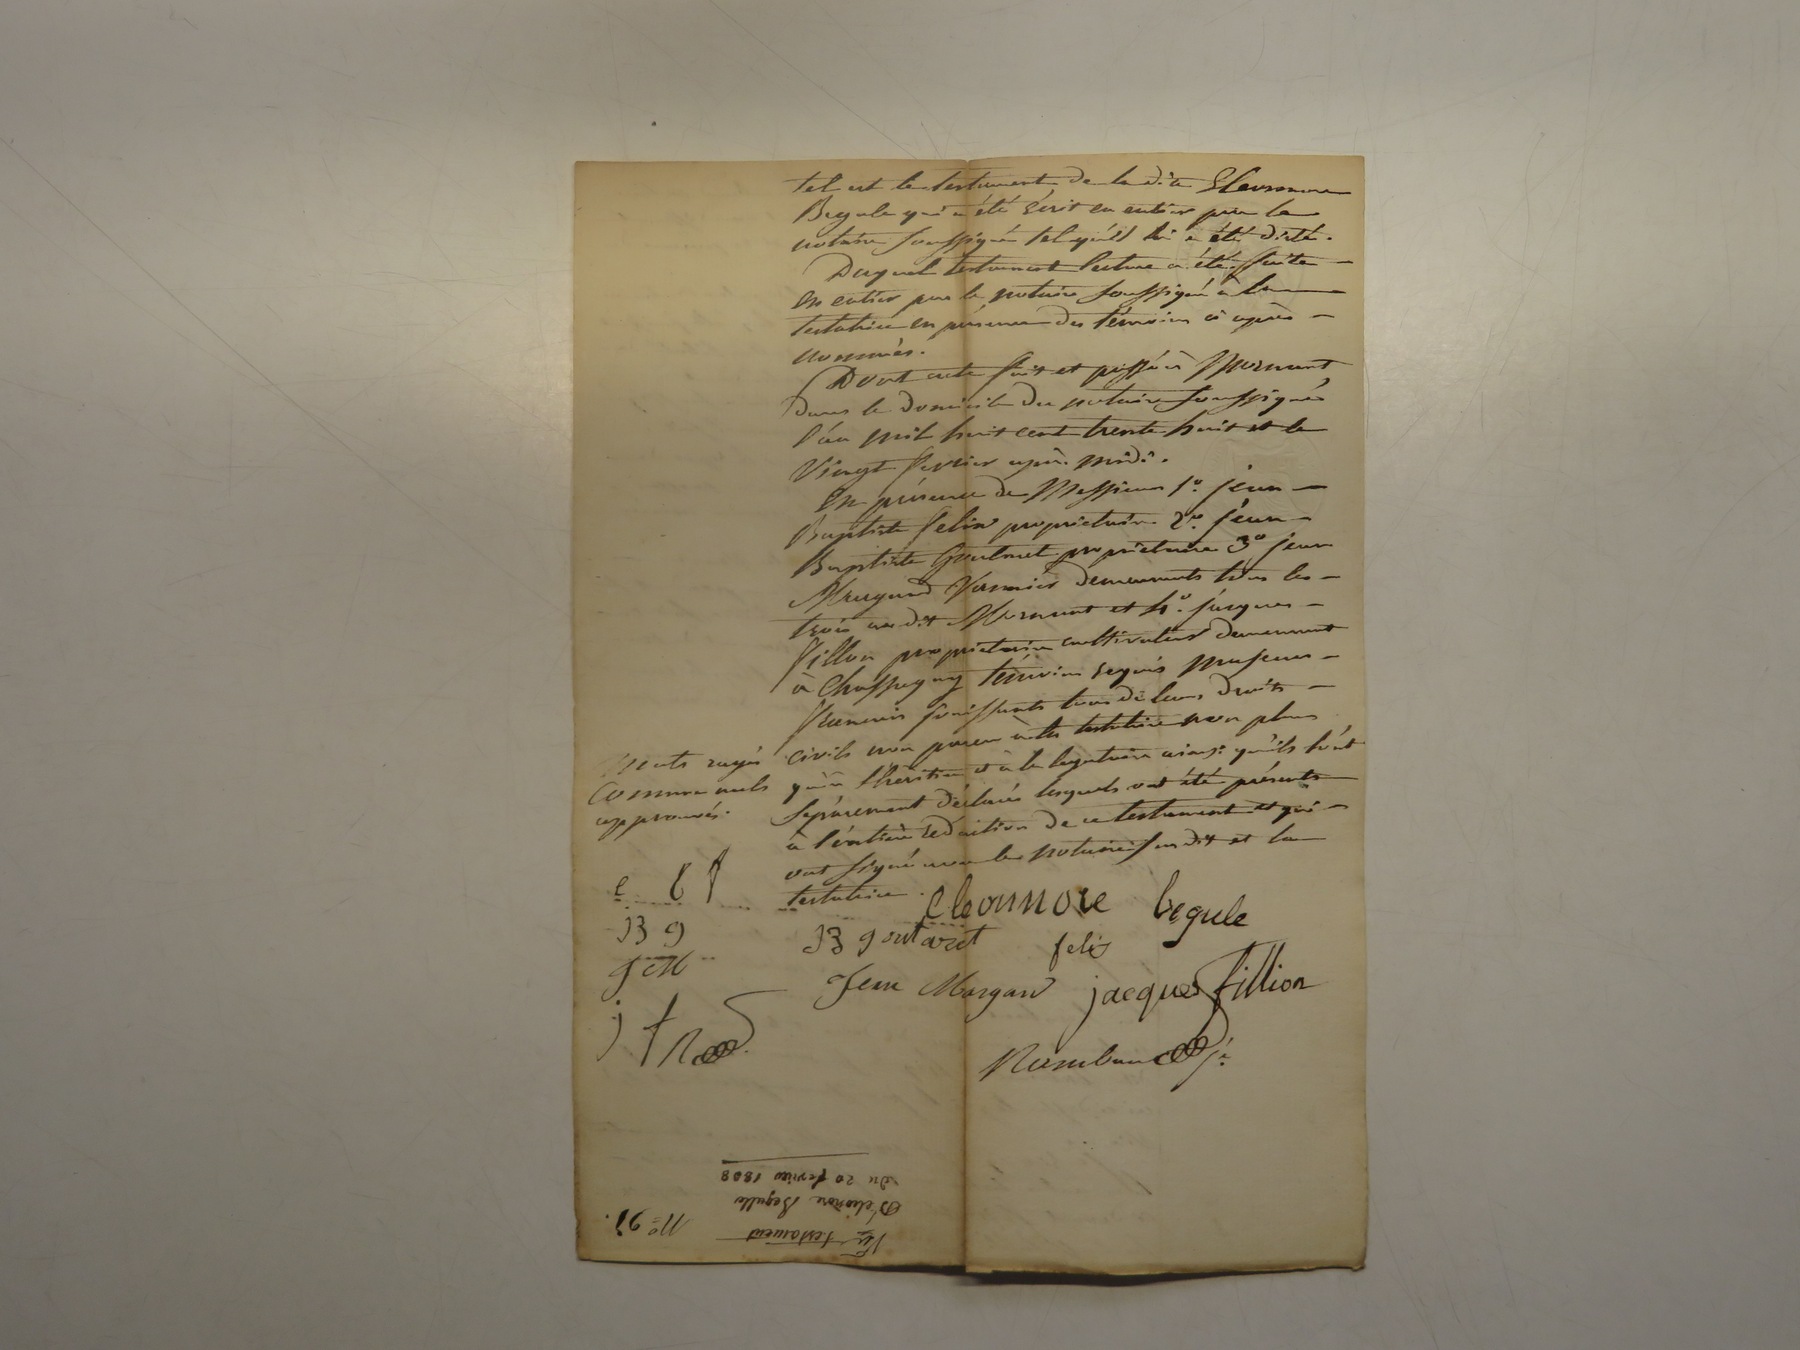 tel est le testament de la dite Eleonnore
Begule qui a été écrit en entier par le
notaire soussigné tel qu'il lui a été dicté.
Duquel testament lecture a été faite
en entier par le notaire soussigné à la
testatrice en présence des témoins ci après
nommés.
Dont acte fait et passé à Mornant
dans le domicile du notaire soussigné
l'an mil huit cent trente huit et le
vingt fevrier après midi.
En présence de Messieurs 1º. jean
Baptiste felix propriétaire 2º. jean
Baptiste Goutaret propriétaire 3º jean
demeurants tous les
trois au dit Mornant et 4º. jacques
fillion propriétaire cultivateur demeurant
à Chassagny témoins requis majeurs
francais jouissants tous de leurs droits
civils non parens à la testatrice non plus
qu'à l'héritier et à la légataire ainsi qu'ils l'ont
séparement déclarés lesquels ont été présents
à l'entière rédaction de ce testament et qui
ont signé avec le notaire susdit et la
testatrice.
mots rayés
comme nuls
approuvés.
e b f
JB g
J M
j f R
eleonnore begule
JB goutaret felix
Jean Margard jacques fillion
Rambaud jne
Nº 97.
testament
D'eléonore Begulle
du 20 fevrier 1838